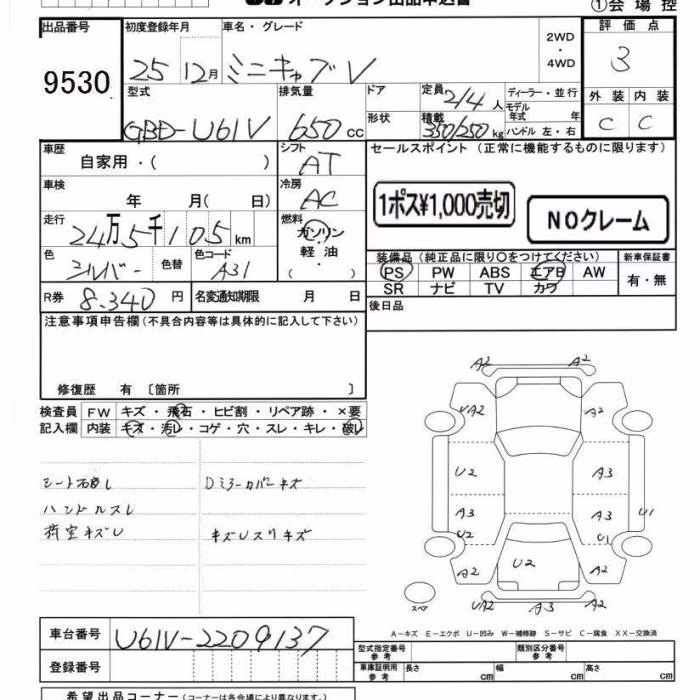 オークション出品申込書
①会場控
出品番号 初度登録年月 車名・グレード 2WD・4WD 評価点
9530 25 12月 ミニキャブV 3
型式 排気量 ドア 定員 2/4人 ディーラー・並行 外装 内装
GBD-U61V 650cc 形状 積載 350/250kg モデル年式 年 ハンドル 左・右 C C
車歴 自家用・( ) シフト AT セールスポイント (正常に機能するものに限ります)
車検 年 月( 日) 冷房 AC
1ポス¥1,000売切 NOクレーム
走行 24万5千105km 燃料 ガソリン・軽油・( )
色 シルバー 色替 色コード A31
装備品(純正品に限り○をつけてください) 新車保証書
PS PW ABS エアB AW 有・無
SR ナビ TV カワ
R券 8.340円 名変通知期限 月 日 後日品
注意事項申告欄(不具合内容等は具体的に記入して下さい)
修復歴 有〔箇所 〕
検査員 FW キズ・飛石・ヒビ割・リペア跡・×要
記入欄 内装 キズ・汚レ・コゲ・穴・スレ・キレ・破レ
シート汚レ Dミラーカバーキズ
ハンドルスレ
荷室キズU キズUスリキズ
A2 A2
UA2 A2
U2 A3
A3 A3 U1
U2 U1
A2 U2 A2
スペア UA2 A3 A2
A-キズ E-エクボ U-凹み W-補修跡 S-サビ C-腐食 XX-交換済
車台番号 U61V-2209137
登録番号
型式指定番号 参考 類別区分番号 参考
車庫証明用 参考 長さ cm 幅 cm 高さ cm
希望出品コーナー(コーナーは各会場により異なります。)